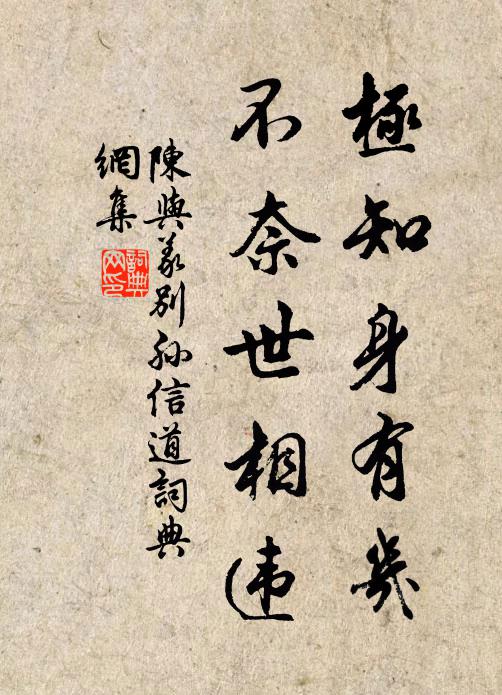 極知身有幾
不奈世相违
陳與義別孙信道詞典
網集
詞典
网印